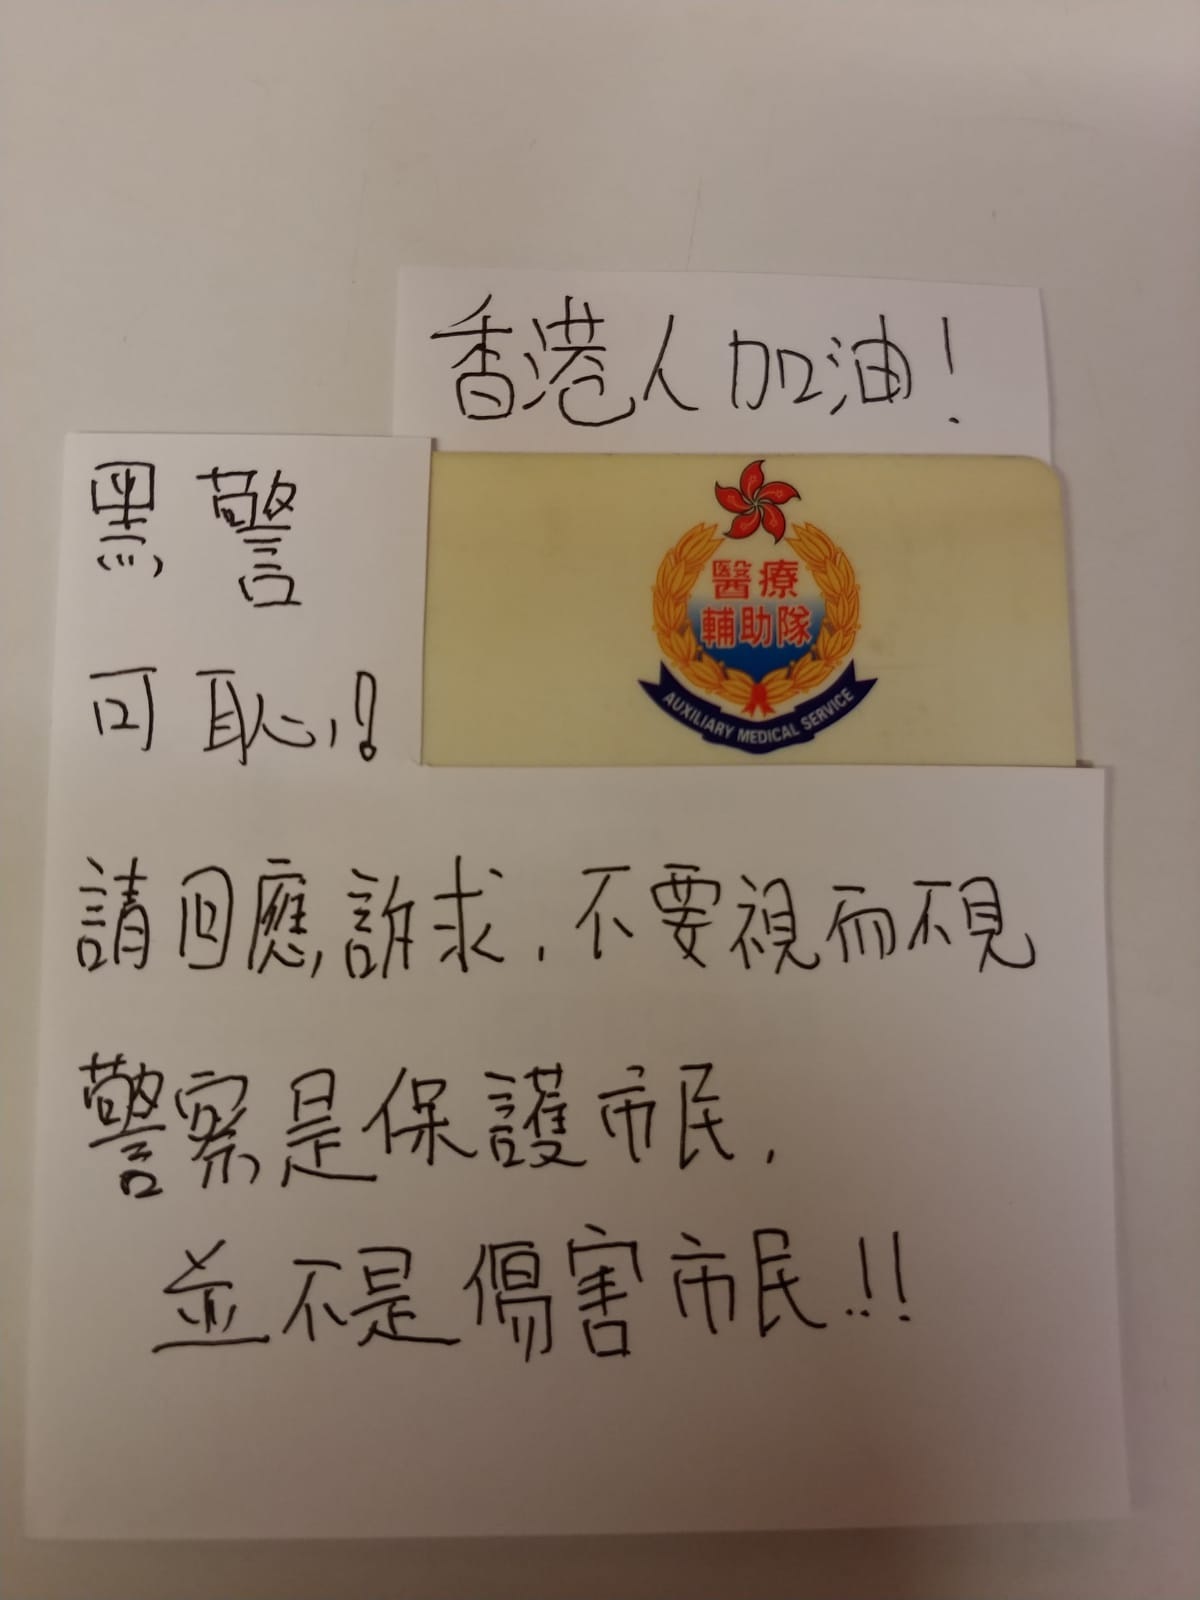 香港人加油!
黑警
可恥!
醫療
輔助隊
AUXILIARY MEDICAL SERVICE
請回應訴求,不要視而不見
警察是保護市民,
並不是傷害市民!!!